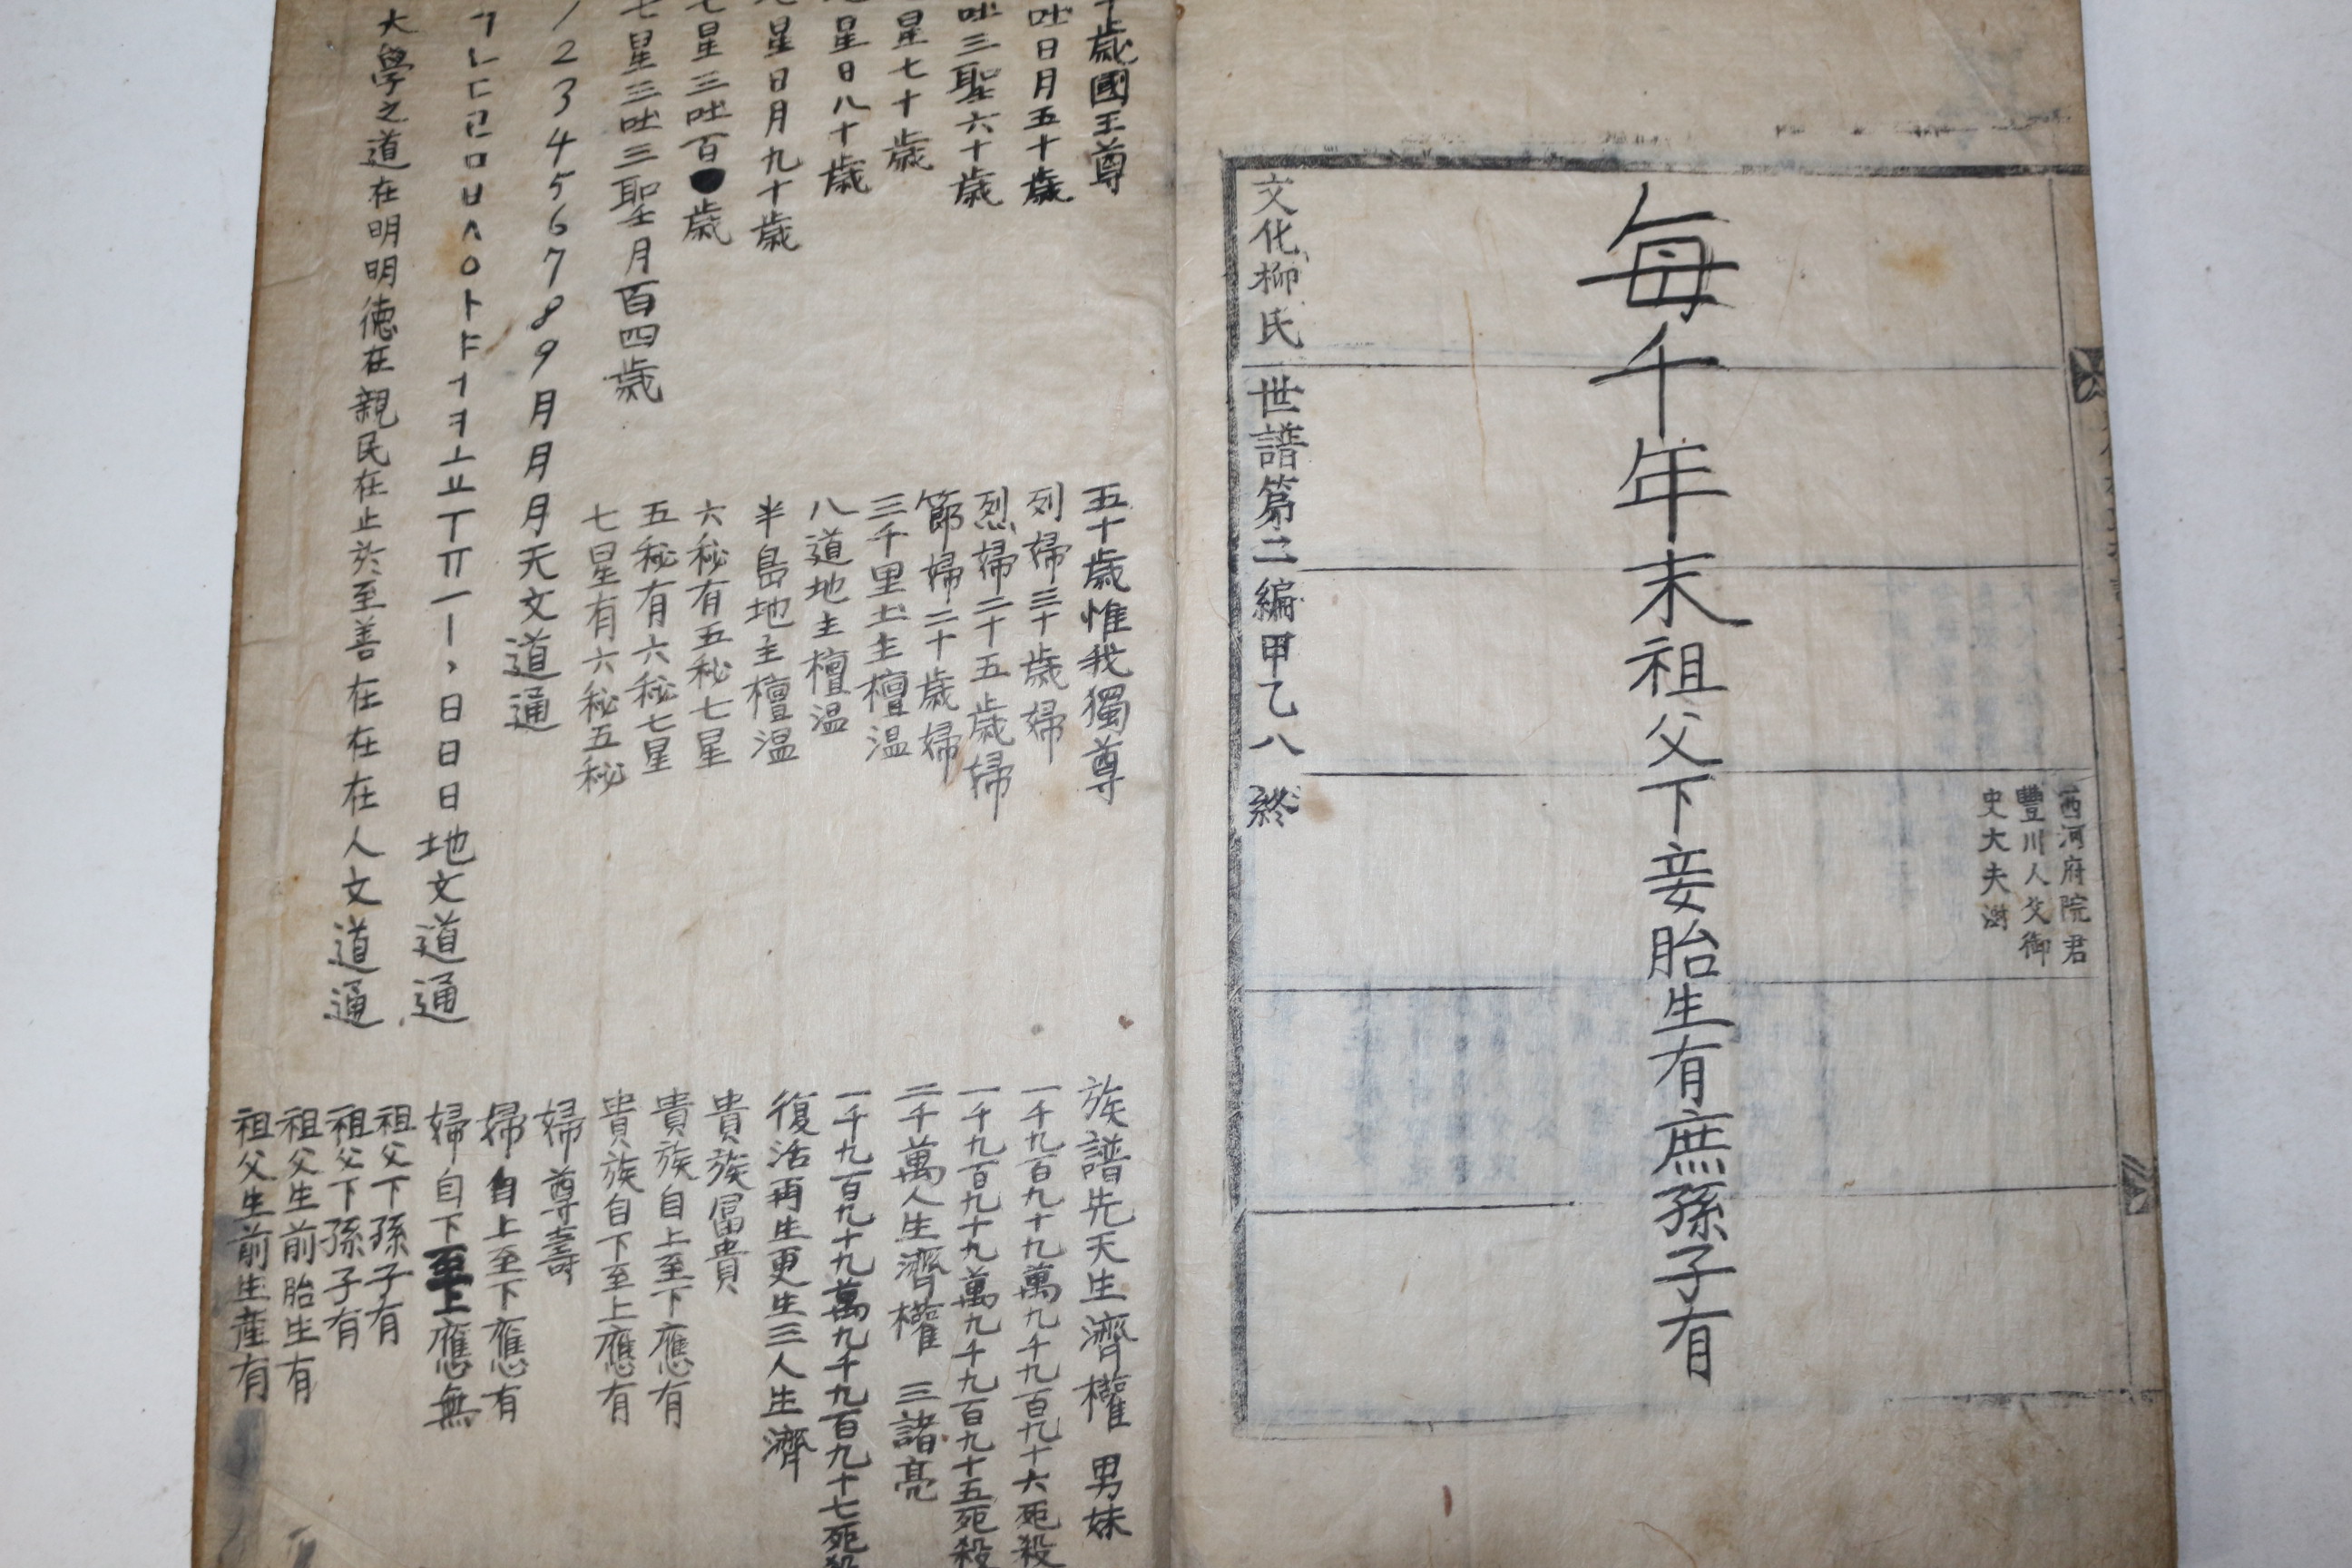 西河府院君
豐川人父御
史大夫澍
每千年末祖父下妾胎生有庶孫子有
文化柳氏世譜第二編甲乙八 終
歲國王尊
吐日月五十歲
吐三聖六十歲
星七十歲
星日八十歲
星日月九十歲
七星三吐百歲
七星三吐三聖月百四歲
1 2 3 4 5 6 7 8 9 月月月天文道通
ㄱㄴㄷㄹㅁㅂㅅㅇㅏㅑㅓㅕㅗㅛㅜㅠㅡㅣ、日日日地文道通
大學之道在明明德在親民在止於至善在在在人文道通
五十歲惟我獨尊
列婦三十歲婦
烈婦二十五歲婦
節婦二十歲婦
三千里土主檀温
八道地主檀温
半島地主檀温
六秘有五秘七星
五秘有六秘七星
七星有六秘五秘
族譜先天生濟權 男妹
一千九百九十九萬九千九百九十六死殺
一千九百九十九萬九千九百九十五死殺
二千萬人生濟權 三諸亮
一千九百九十九萬九千九百九十七死殺
復活再生更生三人生濟
貴族冨貴
貴族自上至下應有
貴族自下至上應有
婦尊壽
婦自上至下應有
婦自下至上應無
祖父下孫子有
祖父下孫子有
祖父生前胎生有
祖父生前生産有